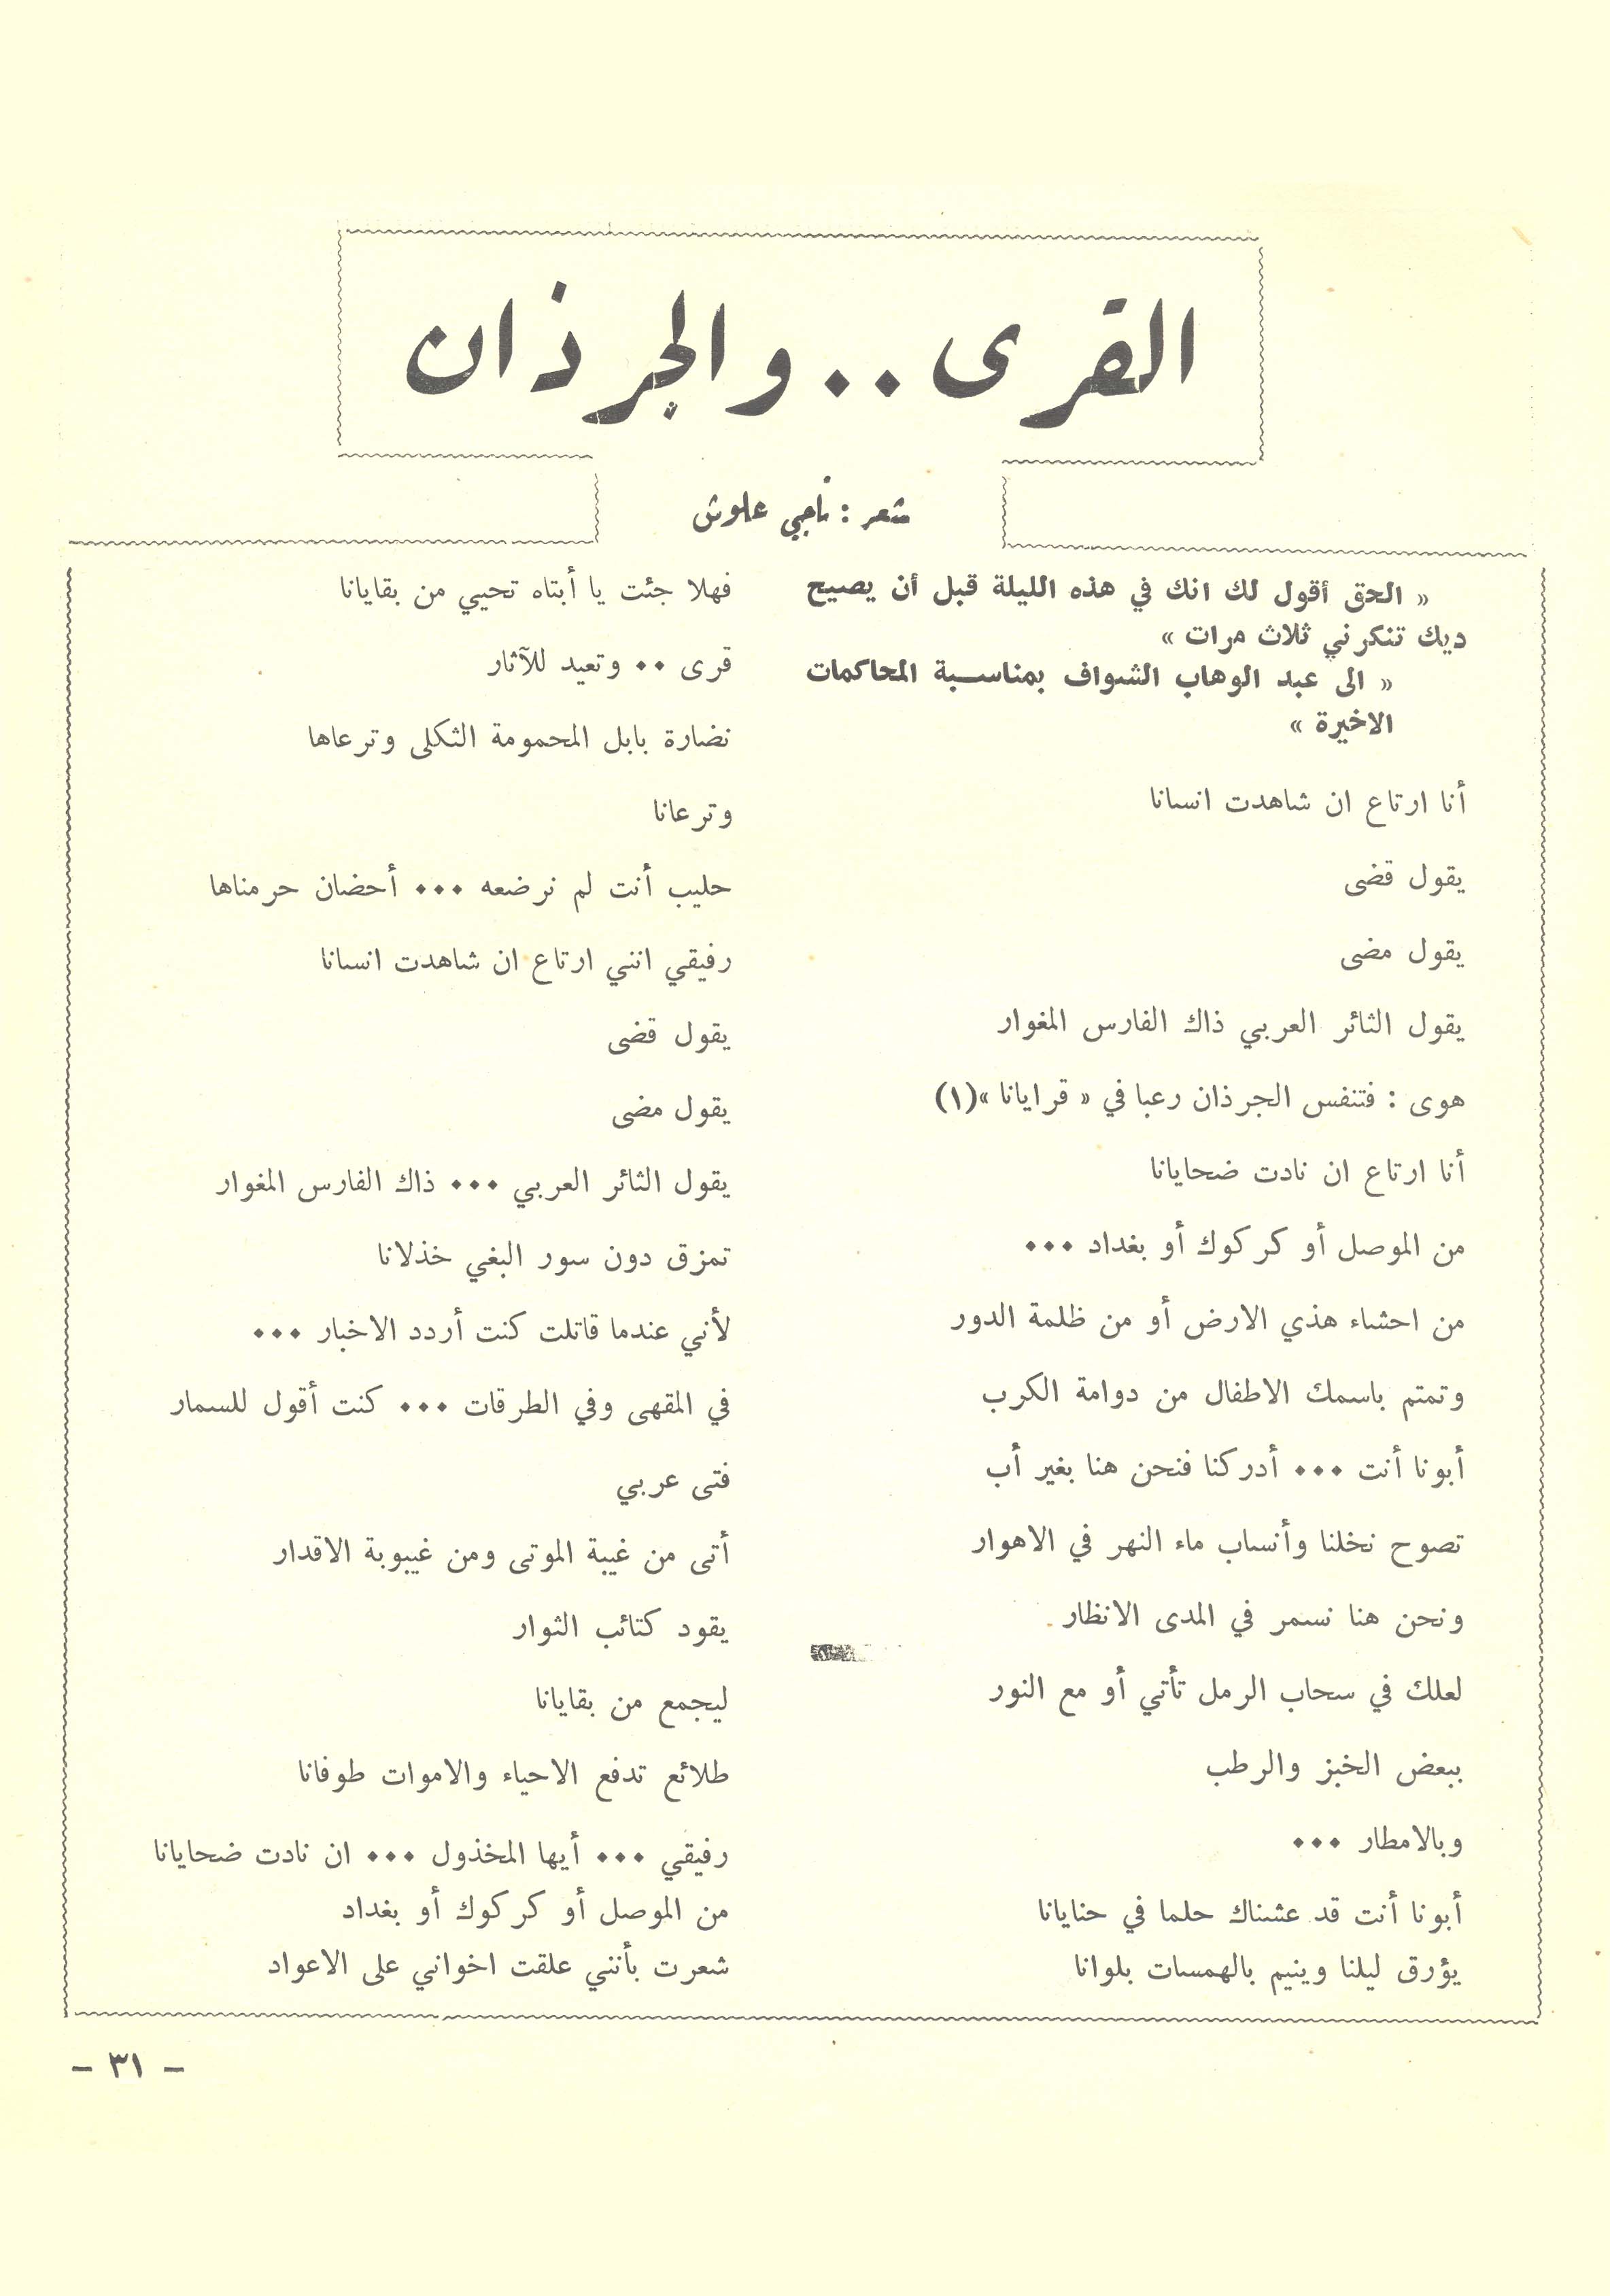 القرى .. والجرذان
شعر : ناجي علوش
« الحق أقول لك انك في هذه الليلة قبل أن يصيح
ديك تنكرني ثلاث مرات »
« الى عبد الوهاب الشواف بمناسبة المحاكمات
الاخيرة »
أنا ارتاع ان شاهدت انسانا
يقول قضى
يقول مضى
يقول الثائر العربي ذاك الفارس المغوار
هوى : فتنفس الجرذان رعبا في « قرايانا »(١)
أنا ارتاع ان نادت ضحايانا
من الموصل أو كركوك أو بغداد ...
من احشاء هذي الارض أو من ظلمة الدور
وتمتم باسمك الاطفال من دوامة الكرب
أبونا أنت ... أدركنا فنحن هنا بغير أب
تصوح نخلنا وأنساب ماء النهر في الاهوار
ونحن هنا نسمر في المدى الانظار
لعلك في سحاب الرمل تأتي أو مع النور
ببعض الخبز والرطب
وبالامطار ...
أبونا أنت قد عشناك حلما في حنايانا
يؤرق ليلنا وينيم بالهمسات بلوانا
فهلا جئت يا أبتاه تحيي من بقايانا
قرى .. وتعيد للآثار
نضارة بابل المحمومة الثكلى وترعاها
وترعانا
حليب أنت لم نرضعه ... أحضان حرمناها
رفيقي انني ارتاع ان شاهدت انسانا
يقول قضى
يقول مضى
يقول الثائر العربي ... ذاك الفارس المغوار
تمزق دون سور البغي خذلانا
لأني عندما قاتلت كنت أردد الاخبار ...
في المقهى وفي الطرقات ... كنت أقول للسمار
فتى عربي
أتى من غيبة الموتى ومن غيبوبة الاقدار
يقود كتائب الثوار
ليجمع من بقايانا
طلائع تدفع الاحياء والاموات طوفانا
رفيقي ... أيها المخذول ... ان نادت ضحايانا
من الموصل أو كركوك أو بغداد
شعرت بأنني علقت اخواني على الاعواد
- ٣١ -